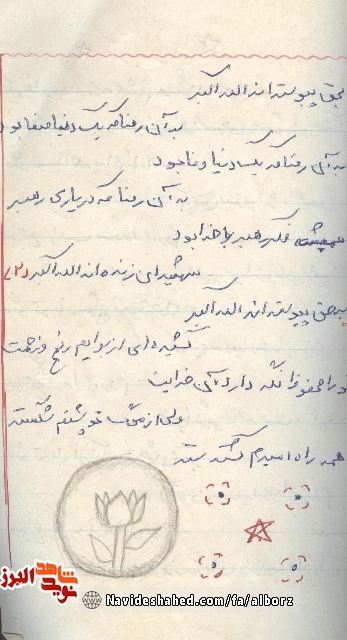 بحق پیوسته اند الله اکبر
به آن رفتا که یک دنیا صفا بود
به آن رفتا که یکدنیا وفا بود
به آن رفتا که در یاری رهبر
فکر رهبر با خدا بود
شهیدان زنده اند الله اکبر (۲)
به حق پیوسته اند الله اکبر
کشیده ای از برایم رنج و زحمت
تو را محفوظ نگه دارد خدایت
ولی از مرگ تو پشتم شکسته
همه راه امیدم گشته بسته
نوید شاهد البرز
Navideshahed.com/fa/alborz